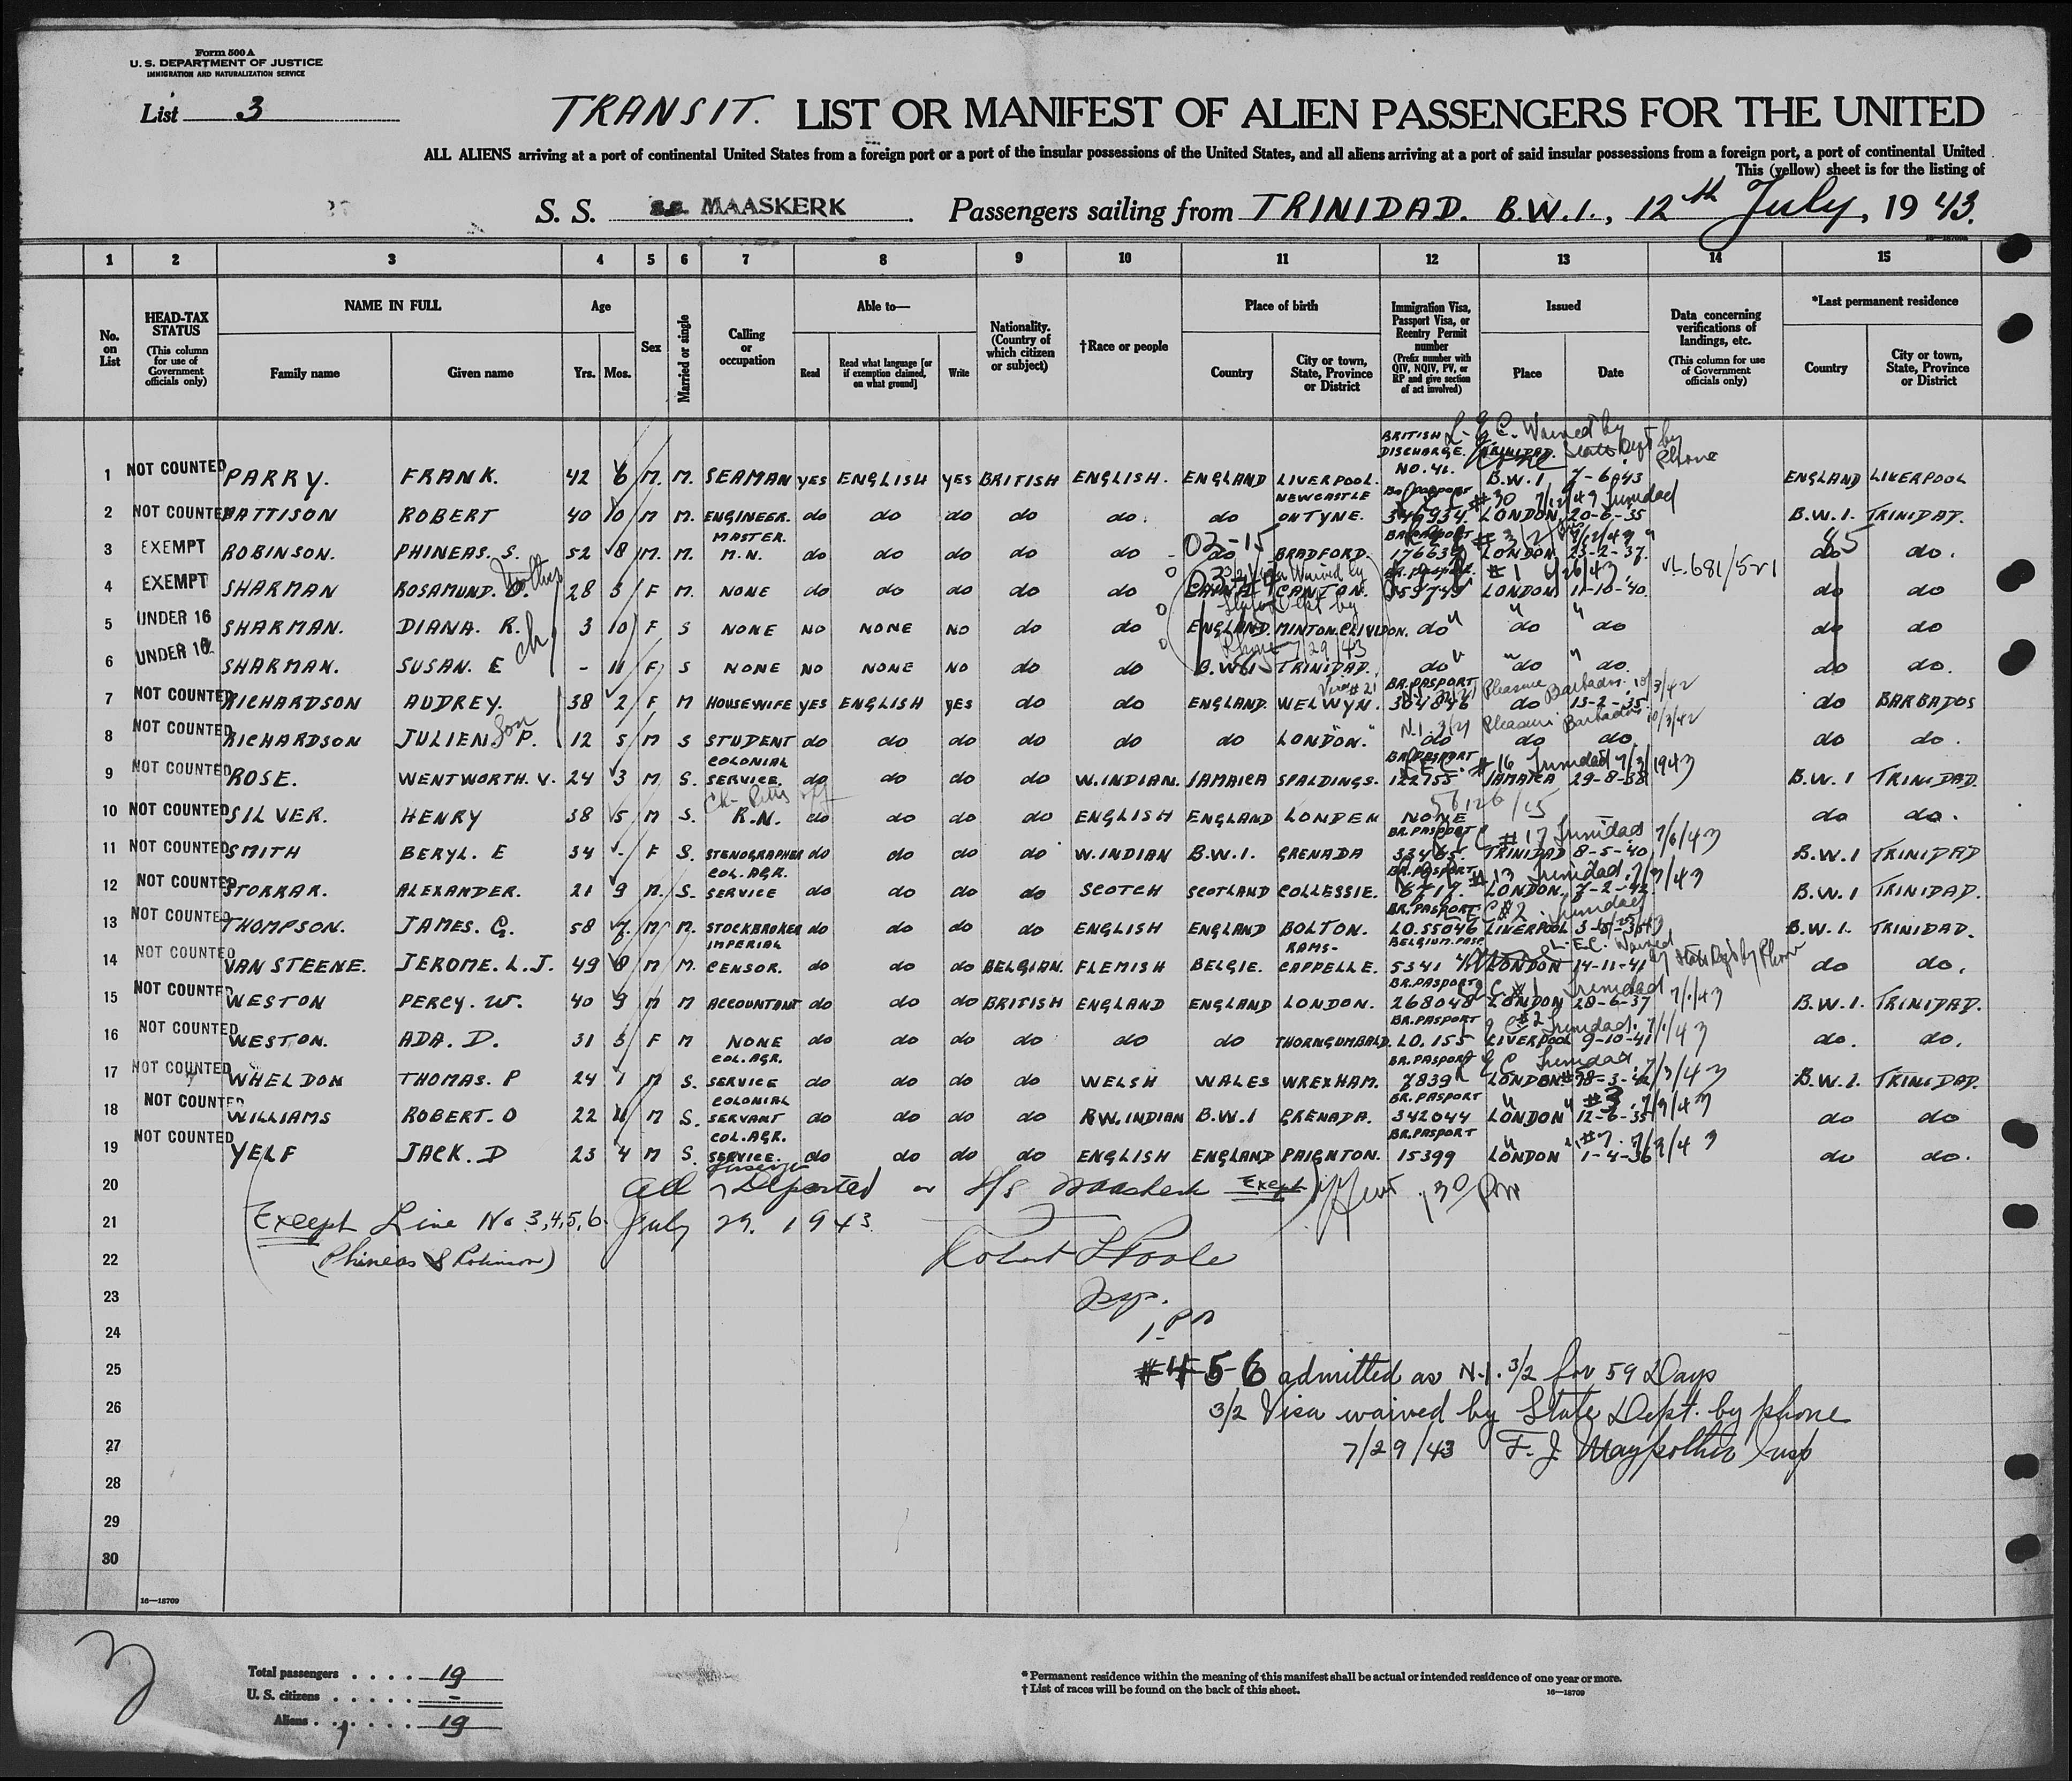 Form 500 A
U. S. DEPARTMENT OF JUSTICE
IMMIGRATION AND NATURALIZATION SERVICE
List 3
TRANSIT. LIST OR MANIFEST OF ALIEN PASSENGERS FOR THE UNITED
ALL ALIENS arriving at a port of continental United States from a foreign port or a port of the insular possessions of the United States, and all aliens arriving at a port of said insular possessions from a foreign port, a port of continental United
This (yellow) sheet is for the listing of
S. S. S.S. MAASKERK. Passengers sailing from TRINIDAD. B.W.I., 12th July, 1943.
1 2 3 4 5 6 7 8 9 10 11 12 13 14 15
No. on List
HEAD-TAX STATUS (This column for use of Government officials only)
NAME IN FULL Family name Given name
Age Yrs. Mos.
Sex
Married or single
Calling or occupation
Able to— Read Read what language [or if exemption claimed, on what ground] Write
Nationality. (Country of which citizen or subject)
†Race or people
Place of birth Country City or town, State, Province or District
Immigration Visa, Passport Visa, or Reentry Permit number (Prefix number with QIV, NQIV, PV, or RP and give section of act involved)
Issued Place Date
Data concerning verifications of landings, etc. (This column for use of Government officials only)
*Last permanent residence Country City or town, State, Province or District
L. E. C. Waived by State Dept by Phone
1 NOT COUNTED PARRY. FRANK. 42 6 M. M. SEAMAN YES ENGLISH YES BRITISH ENGLISH. ENGLAND LIVERPOOL. BRITISH DISCHARGE. NO. 41. TRINIDAD. B.W.I 7-6-43 ENGLAND LIVERPOOL
2 NOT COUNTED PATTISON ROBERT 40 10 M M. ENGINEER. do do do do do. do NEWCASTLE ON TYNE. BR. PASSPORT 346934. LONDON 20-6-35 #30 7/12/43 Trinidad B.W.I. TRINIDAD.
3 EXEMPT ROBINSON. PHINEAS. S. 52 8 M. M. MASTER. M.N. do do do do do do 03-15 BRADFORD. BR. PASPORT 176639 LONDON 23-2-37. do 85 do.
4 EXEMPT SHARMAN ROSAMUND. D. Mother 28 3 F M. NONE do do do do do CHINA CANTON. BR. PASSPORT. 559749 LONDON 11-10-40. #1 VL. 681/521 do do
5 UNDER 16 SHARMAN. DIANA. R. ch 3 10 F S NONE NO NONE NO do do ENGLAND. MINTON. CLIVEDON. do do do do do
6 UNDER 16 SHARMAN. SUSAN. E - 11 F S NONE NO NONE NO do do B.W.I TRINIDAD. do do do. do do.
3/2 Visa Waived by State Dept by Phone 7/29/43
7 NOT COUNTED RICHARDSON AUDREY. 38 2 F M HOUSEWIFE YES ENGLISH YES do do ENGLAND. WELWYN. Visa #21 BR. PASPORT 304846 do 13-2-35. Pleasure Barbados 10/3/42 do BARBADOS
8 NOT COUNTED RICHARDSON JULIEN P. Son 12 5 M S STUDENT do do do do do do LONDON. N.I. 3/2 Pleasure Barbados 10/3/42 do do do do do.
9 NOT COUNTED ROSE. WENTWORTH. V. 24 3 M S. COLONIAL SERVICE. do do do do W. INDIAN. JAMAICA SPALDINGS. BR. PASPORT 122755 JAMAICA 29-8-38 #16 Trinidad 7/3/1943 B.W.I TRINIDAD.
10 NOT COUNTED SILVER. HENRY 38 5 M S. R.N. do do do do ENGLISH ENGLAND LONDEN NONE 56126/15 do do.
11 NOT COUNTED SMITH BERYL. E 34 - F S. STENOGRAPHER do do do do W. INDIAN B.W.I. GRENADA BR. PASPORT 33465. TRINIDAD 8-5-40 #17 Trinidad 7/6/43 B.W.I TRINIDAD
12 NOT COUNTED STORRAR. ALEXANDER. 21 9 M. S. COL. AGR. SERVICE do do do do SCOTCH SCOTLAND COLLESSIE. BR. PASPORT 6717. LONDON. 7-2-42 #13 Trinidad. 7/9/43 B.W.I TRINIDAD.
13 NOT COUNTED THOMPSON. JAMES. G. 58 7 M M. STOCKBROKER do do do do ENGLISH ENGLAND BOLTON. BR. PASPORT LO. 55046 LIVERPOOL #2 Trinidad B.W.I. TRINIDAD.
14 NOT COUNTED VAN STEENE. JEROME. L. J. 49 8 M M. IMPERIAL CENSOR. do do do BELGIAN. FLEMISH BELGIE. RAMS-CAPPELLE. BELGIUM. PASP. 5341 LONDON 14-11-41 L.E.C. Waived by State Dept by Phone do do.
15 NOT COUNTED WESTON PERCY. W. 40 9 M M ACCOUNTANT do do do BRITISH ENGLAND ENGLAND LONDON. BR. PASPORT 268048 LONDON 28-6-37 #1 Trinidad 7/1/43 B.W.I. TRINIDAD.
16 NOT COUNTED WESTON. ADA. D. 31 3 F M NONE do do do do do do THORNGUMBALD. BR. PASPORT LO. 155 LIVERPOOL 9-10-41 #2 Trinidad. 7/1/43 do. do.
17 NOT COUNTED WHELDON THOMAS. P 24 1 M S. COL. AGR. SERVICE do do do do WELSH WALES WREXHAM. BR. PASPORT 7839 LONDON Trinidad 7/3/43 B.W.I. TRINIDAD.
18 NOT COUNTED WILLIAMS ROBERT. O 22 11 M S. COLONIAL SERVANT do do do do W. INDIAN B.W.I GRENADA. BR. PASPORT 342044 LONDON 12-6-35 #3 7/9/43 do do
19 NOT COUNTED YELF JACK. D 23 4 M S. COL. AGR. SERVICE. do do do do ENGLISH ENGLAND PAIGNTON. BR. PASPORT 15399 LONDON 1-4-36 #7. 7/9/43 do do.
20 All Departed on S/S Maaskerk Except
21 Except Line No 3,4,5,6. July 29. 1943 1:30 PM
22 (Phineas S Robinson) Robert L Poole
23 Insp.
24
25 #4-5-6 admitted as N.I. 3/2 for 59 Days
26 3/2 Visa waived by State Dept. by phone
27 7/29/43 F. J. Maypother Insp
28
29
30
16—18709
Total passengers . . . . 19
U. S. citizens . . . . . -
Aliens . . . . . . 19
* Permanent residence within the meaning of this manifest shall be actual or intended residence of one year or more.
† List of races will be found on the back of this sheet.
16—18709